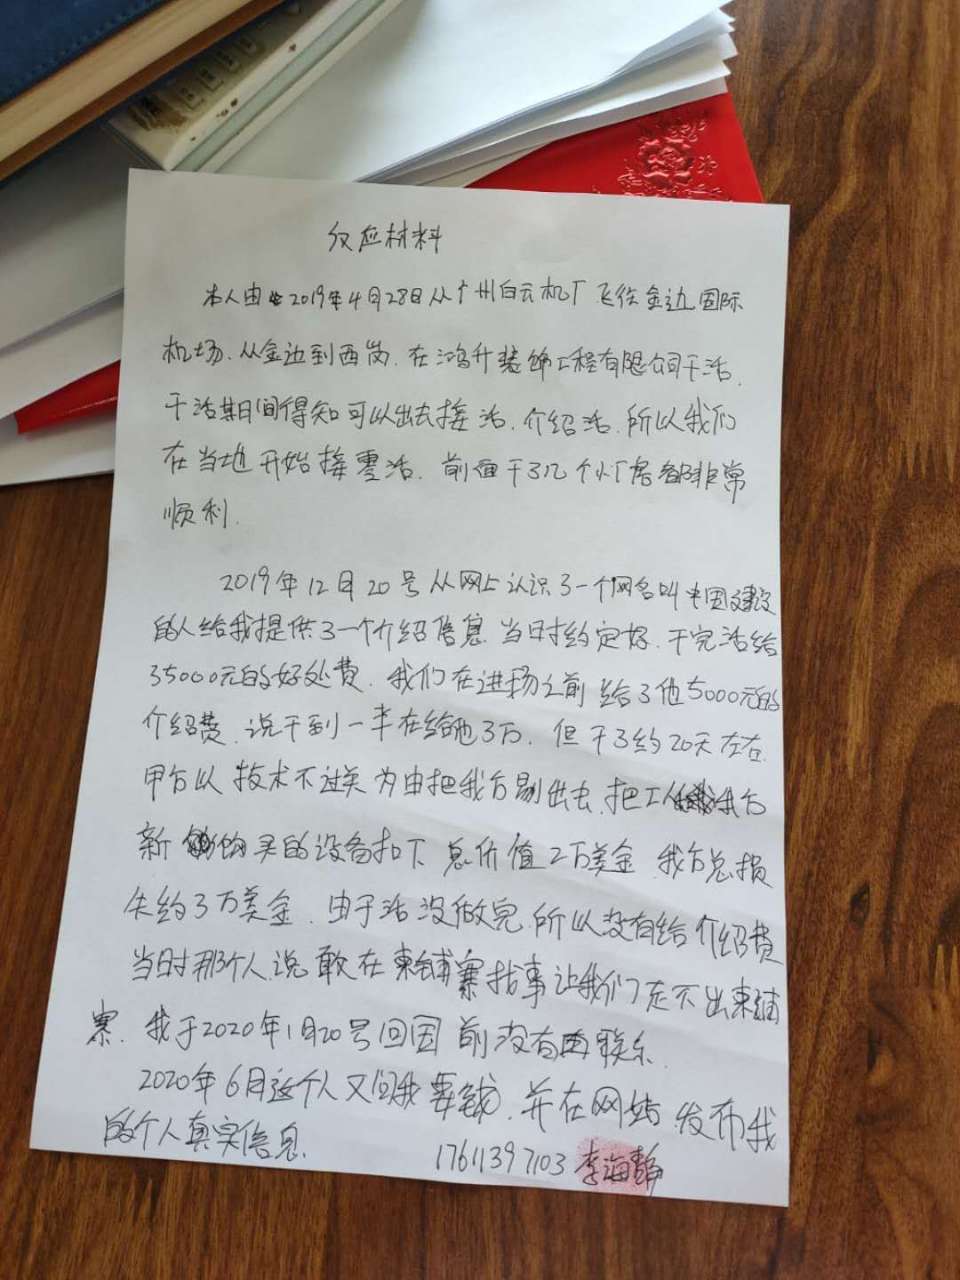 反应材料
本人由于2019年4月28日从广州白云机厂飞往金边国际
机场.从金边到西岗.在鸿升装饰工程有限公司干活.
干活其日间得知可以出去接活.介绍活.所以我们
在当地开始接零活.前面干了几个小厂房都非常
顺利.
2019年12月20号从网上认识了一个网名叫中国建设
的人给我提供了一个介绍信息.当时约定好.干完活给
35000元的好处费.我们在进场之前给了他5000元的
介绍费.说干到一半在给他3万.但干了约20天左右.
甲方以技术不过关为由把我方剔出去.把我方
新购买的设备扣下总价值2万美金.我方总损
失约3万美金.由于活没做完.所以没有给介绍费
当时那个人说敢在柬铺寨找事让我们走不出柬铺
寨.我于2020年1月20号回国前没有再联系.
2020年6月这个人又问我要钱.并在网站发布我
的个人真实信息.
17611397103 李海静